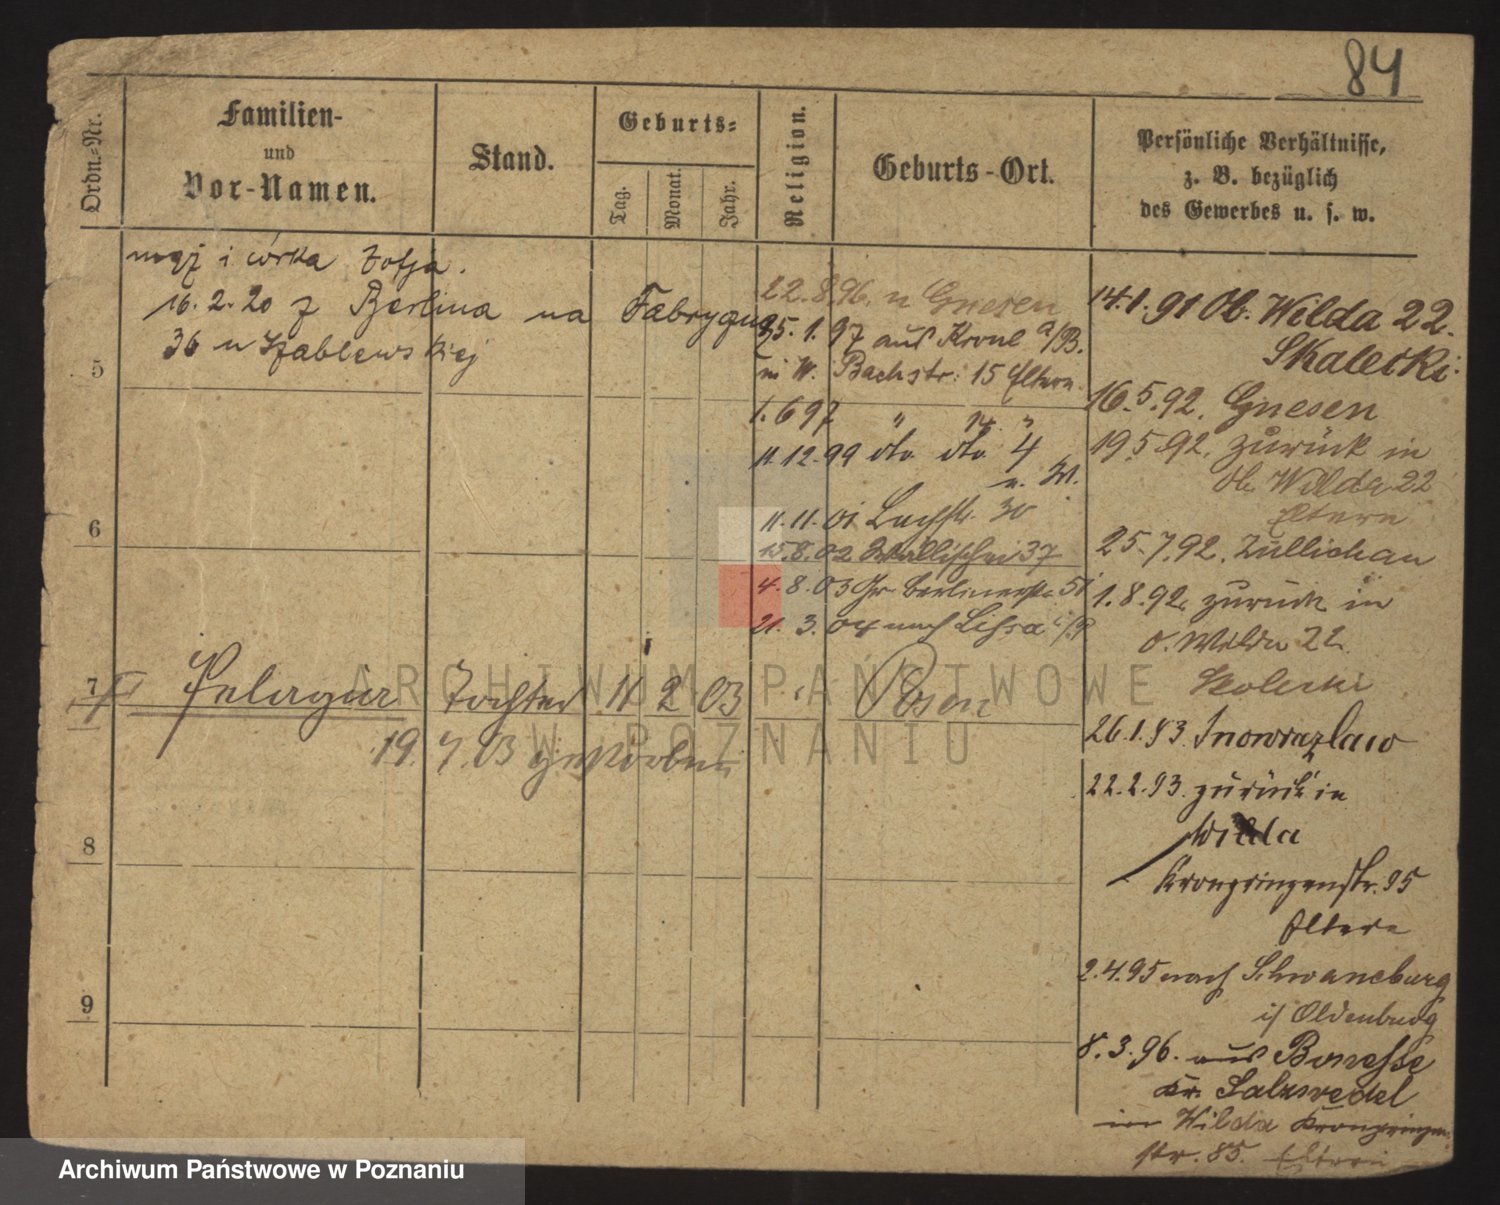 84
Ordn.=Nr.
Familien-
und
Vor-Namen.
Stand.
Geburts=
Tag.
Monat.
Jahr.
Religion.
Geburts-Ort.
Persönliche Verhältnisse,
z. B. bezüglich
des Gewerbes u. s. w.
mąż i córka Zofja.
16. 2. 20 z Berlina na Fabryczną
36 u Szablewskiej
5
6
7 Pelagia Tochter 11 2 03 Posen
19. 7. 03
8
9
22. 8. 96. n Gnesen
25. 1. 97 aus Krone a/B.
in W. Bachstr. 15 Eltern
1. 6 97 " 14 "
11. 12. 99 dto dto 4
n. W.
11. 11. 01 Bachstr. 30
15. 8. 02 Wallischei 37
4. 8. 03 Gr. Berlinerstr. 51
21. 3. 04 nach Lissa i/P
14. 1. 91 Ob. Wilda 22.
Skalecki
16. 5. 92. Gnesen
19 5 92. zurück in
Ob. Wilda 22
Eltern
25. 7. 92. Züllichau
1. 8. 92. zurück in
O. Wilda 22.
Skolecki
26. 1. 93. Inowrazlaw
22. 2. 93. zurück in
Wilda
Kronprinzenstr. 95
Eltern
2. 4. 95 nach Schwaneburg
i/ Oldenburg
8. 3. 96. aus Bonesse
Kr. Salzwedel
in Wilda Kronprinzen
str. 85. Eltern
ARCHIWUM PAŃSTWOWE
W POZNANIU
Archiwum Państwowe w Poznaniu